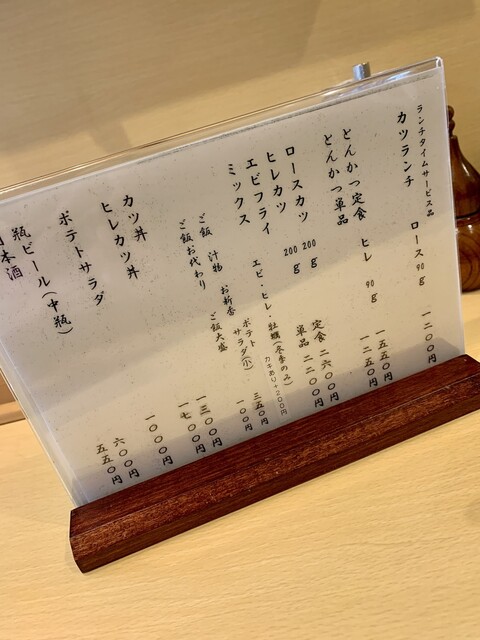 ランチタイムサービス品
カツランチ ロース90g 一二〇〇円
ヒレ 90g 一五五〇円
一二五〇円
とんかつ定食
とんかつ単品
ロースカツ 200g 定食 二六〇〇円
ヒレカツ 200g 単品 二二〇〇円
エビフライ
ミックス エビ・ヒレ・牡蠣(冬季のみ)
カキあり+200円
ポテトサラダ(小) 三五〇円
ご飯 汁物 お新香
ご飯お代わり ご飯大盛 一〇〇円
カツ丼 一三〇〇円
ヒレカツ丼 一七〇〇円
ポテトサラダ 一〇〇〇円
瓶ビール(中瓶) 六〇〇円
日本酒 五五〇円